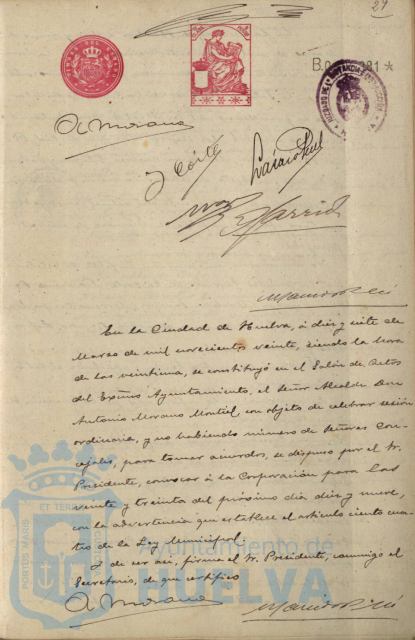 29
TIMBRE DEL ESTADO
B.0
81 *
A. Morano
En la Ciudad de Huelva, á diez y siete de
Marzo de mil novecientos veinte, siendo la hora
de las veintiuna, se constituyó en el Salón de Actos
del Excmo Ayuntamiento, el Señor Alcalde Don
Antonio Morano Montiel, con objeto de celebrar sesión
ordinaria, y no habiendo número de Señores Con-
cejales, para tomar acuerdos, se dispuso por el Sr.
Presidente, convocar á la Corporación para las
veinte y treinta del próximo dia diez y nueve,
con la advertencia que establece el artículo ciento cua-
tro de la Ley Municipal.
Y de ser así, firma el Sr. Presidente, conmigo el
Secretario, de que certifico
A. Morano
PORTUS MARIS
ET TERRAE
Ayuntamiento de
HUELVA